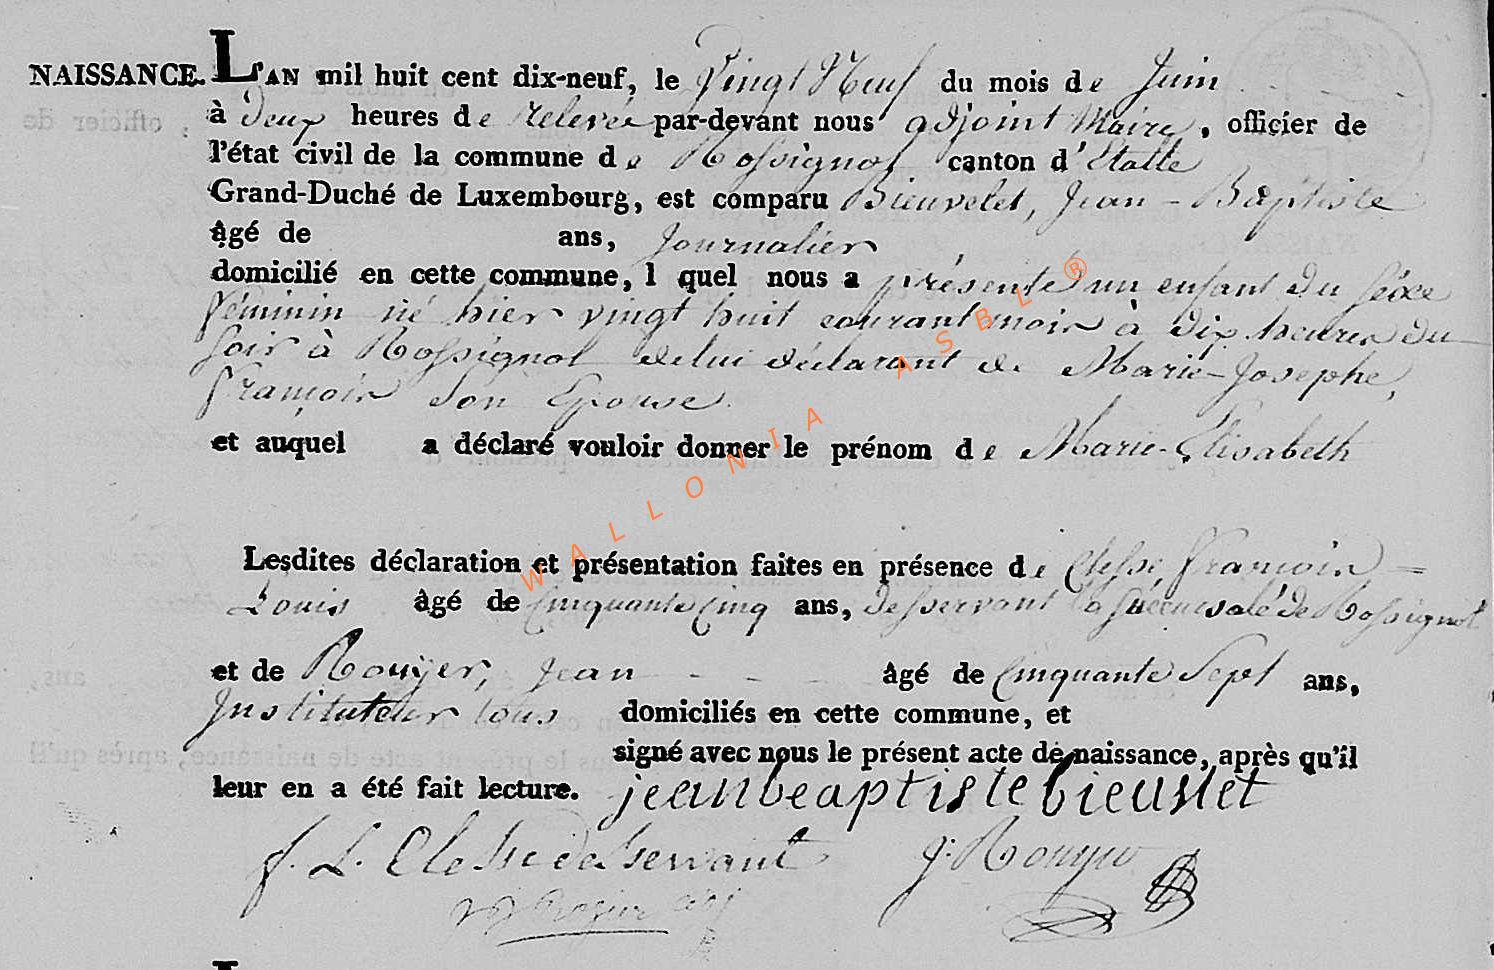 NAISSANCE. L'AN mil huit cent dix-neuf, le Vingt Neuf du mois de Juin
à deux heures de relevée par-devant nous adjoint Maire, officier de
l'état civil de la commune de Rossignol canton d'Etalle
Grand-Duché de Luxembourg, est comparu Bieuvelet, Jean-Baptiste
âgé de ans, Journalier
domicilié en cette commune, l quel nous a présenté un enfant du séxe
féminin né hier vingt huit courant mois à dix heures du
soir à Rossignol de lui déclarant de Marie-Josephe,
françois son Epouse.
et auquel a déclaré vouloir donner le prénom de Marie-Elisabeth
Lesdites déclaration et présentation faites en présence de Clesse, françois =
Louis âgé de Cinquante Cinq ans, desservant la succursale de Rossignol
et de Rouyer, Jean - - - âgé de Cinquante Sept ans,
Instituteur tous domiciliés en cette commune, et
signé avec nous le présent acte de naissance, après qu'il
leur en a été fait lecture. jean beaptiste bieuvlet
f. L. Clesse desservant j. Rouyer
WALLONIA ASBL ®